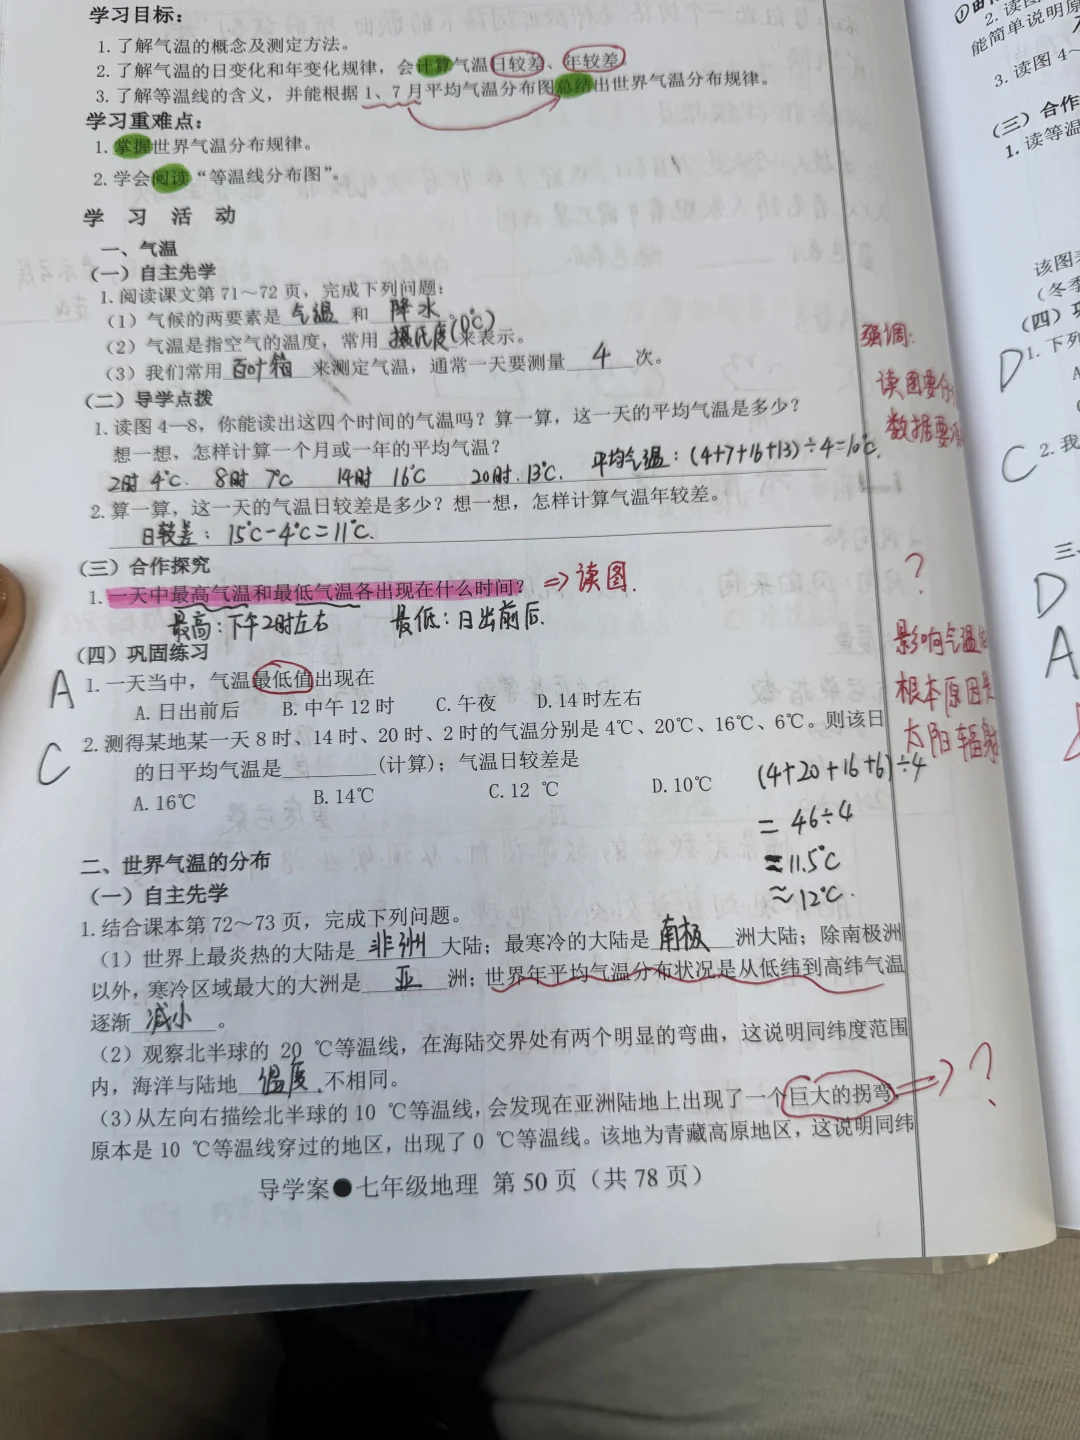 学习目标：
1. 了解气温的概念及测定方法。
2. 了解气温的日变化和年变化规律，会计算气温日较差、年较差。
3. 了解等温线的含义，并能根据 1、7 月平均气温分布图总结出世界气温分布规律。
学习重难点：
1. 掌握世界气温分布规律。
2. 学会阅读“等温线分布图”。
学 习 活 动
一、气温
（一）自主先学
1. 阅读课文第 71～72 页，完成下列问题：
（1）气候的两要素是 气温 和 降水 。
（2）气温是指空气的温度，常用 摄氏度(0℃) 来表示。
（3）我们常用 百叶箱 来测定气温，通常一天要测量 4 次。
（二）导学点拨
1. 读图 4—8，你能读出这四个时间的气温吗？算一算，这一天的平均气温是多少？
想一想，怎样计算一个月或一年的平均气温？
2时 4℃. 8时 7℃ 14时 16℃ 20时. 13℃. 平均气温：(4+7+16+13)÷4=10℃.
2. 算一算，这一天的气温日较差是多少？想一想，怎样计算气温年较差。
日较差：15℃-4℃=11℃.
（三）合作探究
1. 一天中最高气温和最低气温各出现在什么时间？ ⇒读图.
最高：下午2时左右 最低：日出前后.
（四）巩固练习
A 1. 一天当中，气温最低值出现在
A. 日出前后 B. 中午 12 时 C. 午夜 D. 14 时左右
C 2. 测得某地某一天 8 时、14 时、20 时、2 时的气温分别是 4℃、20℃、16℃、6℃。则该日
的日平均气温是________（计算）；气温日较差是
A. 16℃ B. 14℃ C. 12 ℃ D. 10℃
(4+20+16+6)÷4
= 46÷4
=11.5℃
≈12℃.
二、世界气温的分布
（一）自主先学
1. 结合课本第 72～73 页，完成下列问题。
（1）世界上最炎热的大陆是 非洲 大陆；最寒冷的大陆是 南极 洲大陆；除南极洲
以外，寒冷区域最大的大洲是 亚 洲；世界年平均气温分布状况是从低纬到高纬气温
逐渐 减小 。
（2）观察北半球的 20 ℃等温线，在海陆交界处有两个明显的弯曲，这说明同纬度范围
内，海洋与陆地 温度 不相同。
（3）从左向右描绘北半球的 10 ℃等温线，会发现在亚洲陆地上出现了一个巨大的拐弯， ⇒？
原本是 10 ℃等温线穿过的地区，出现了 0 ℃等温线。该地为青藏高原地区，这说明同纬
导学案●七年级地理 第 50 页（共 78 页）
强调：
读图要
数据要
？
影响气温
根本原因是
太阳辐射
2. 读图
能简单说明原
3. 读图 4～
（三）合作
1. 读等温
该图
（冬季
D 1. 下列
C 2. 我
三
D
A